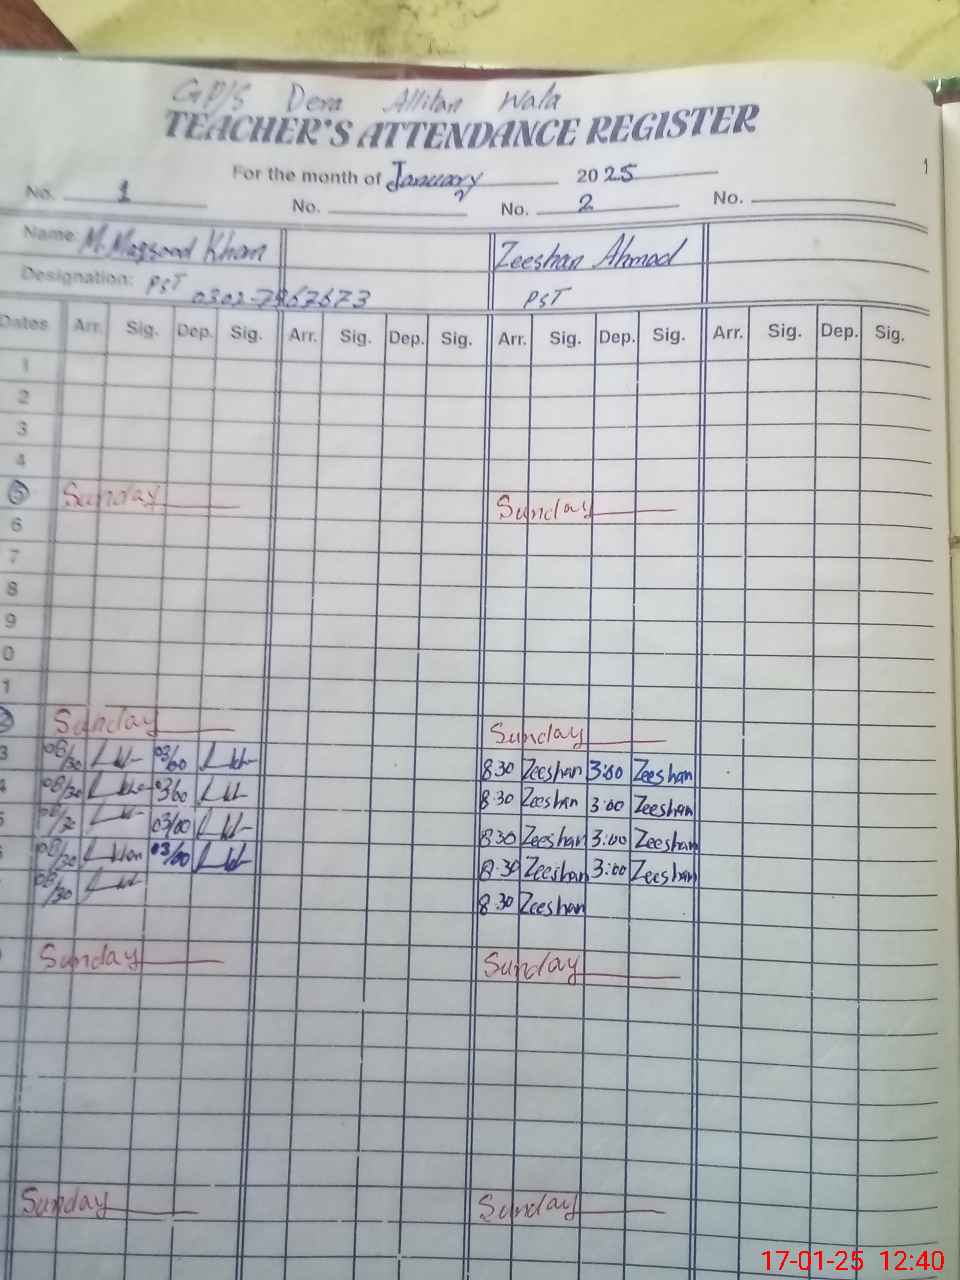 GP/S Dera Allitan Wala
TEACHER'S ATTENDANCE REGISTER
For the month of January 2025
No. 1 No. No. 2 No.
Name M. Maqsood Khan Zeeshan Ahmad
Designation: PST PST
Dates Arr. Sig. Dep. Sig. Arr. Sig. Dep. Sig. Arr. Sig. Dep. Sig. Arr. Sig. Dep. Sig.
1
2
3
4
5 Sunday Sunday
6
7
8
9
0
1
2 Sunday Sunday
3 08/30 03/00 8:30 Zeeshan 3:00 Zeeshan
4 08/30 03/00 8:30 Zeeshan 3:00 Zeeshan
5 08/30 03/00 8:30 Zeeshan 3:00 Zeeshan
08/30 03/00 8:30 Zeeshan 3:00 Zeeshan
08/30 8:30 Zeeshan
Sunday Sunday
Sunday Sunday
17-01-25 12:40